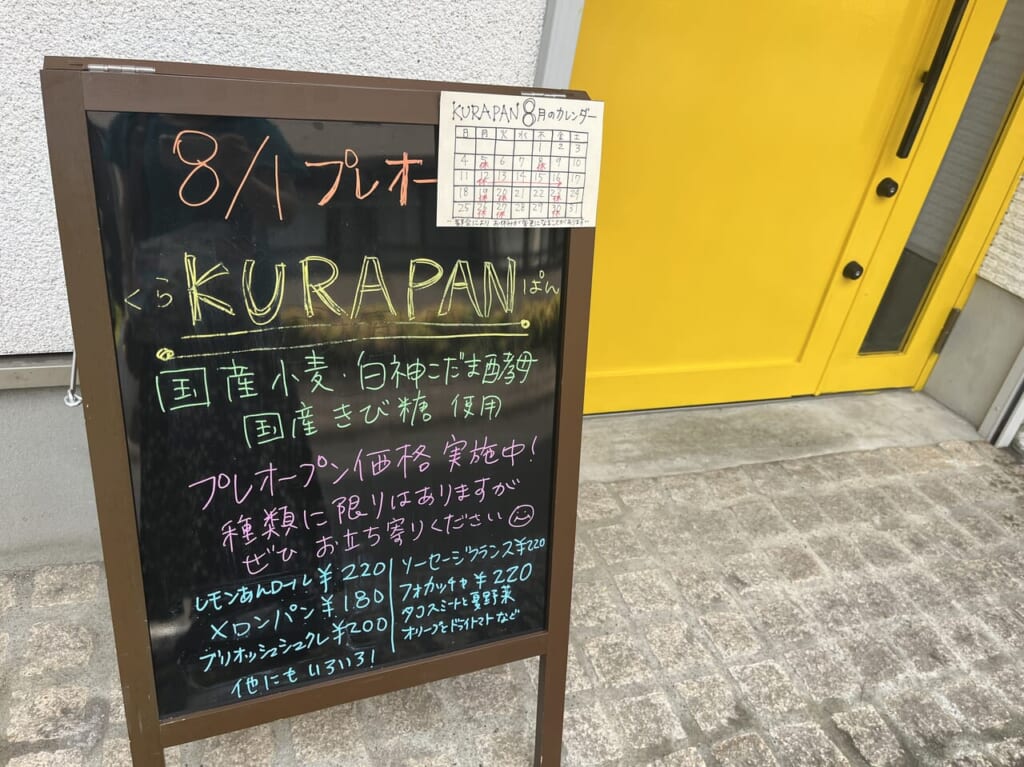 8/1 プレオー
KURAPAN 8月のカレンダー
日 月 火 水 木 金 土
1 2 3
4 5 休 6 7 8 休 9 10
11 12 休 13 14 15 16 17
18 19 休 20 休 21 22 23 休 24
25 26 休 27 休 28 29 30 休 31
くら KURAPAN ぱん
国産小麦・白神こだま酵母
国産きび糖 使用
プレオープン価格実施中!
種類に限りはありますが
ぜひ お立ち寄りください
レモンあんロール ¥220
メロンパン ¥180
ブリオッシュシュクレ ¥200
他にもいろいろ!
ソーセージフランス ¥220
フォカッチャ ¥220
タコスミートと夏野菜
オリーブとドライトマト など